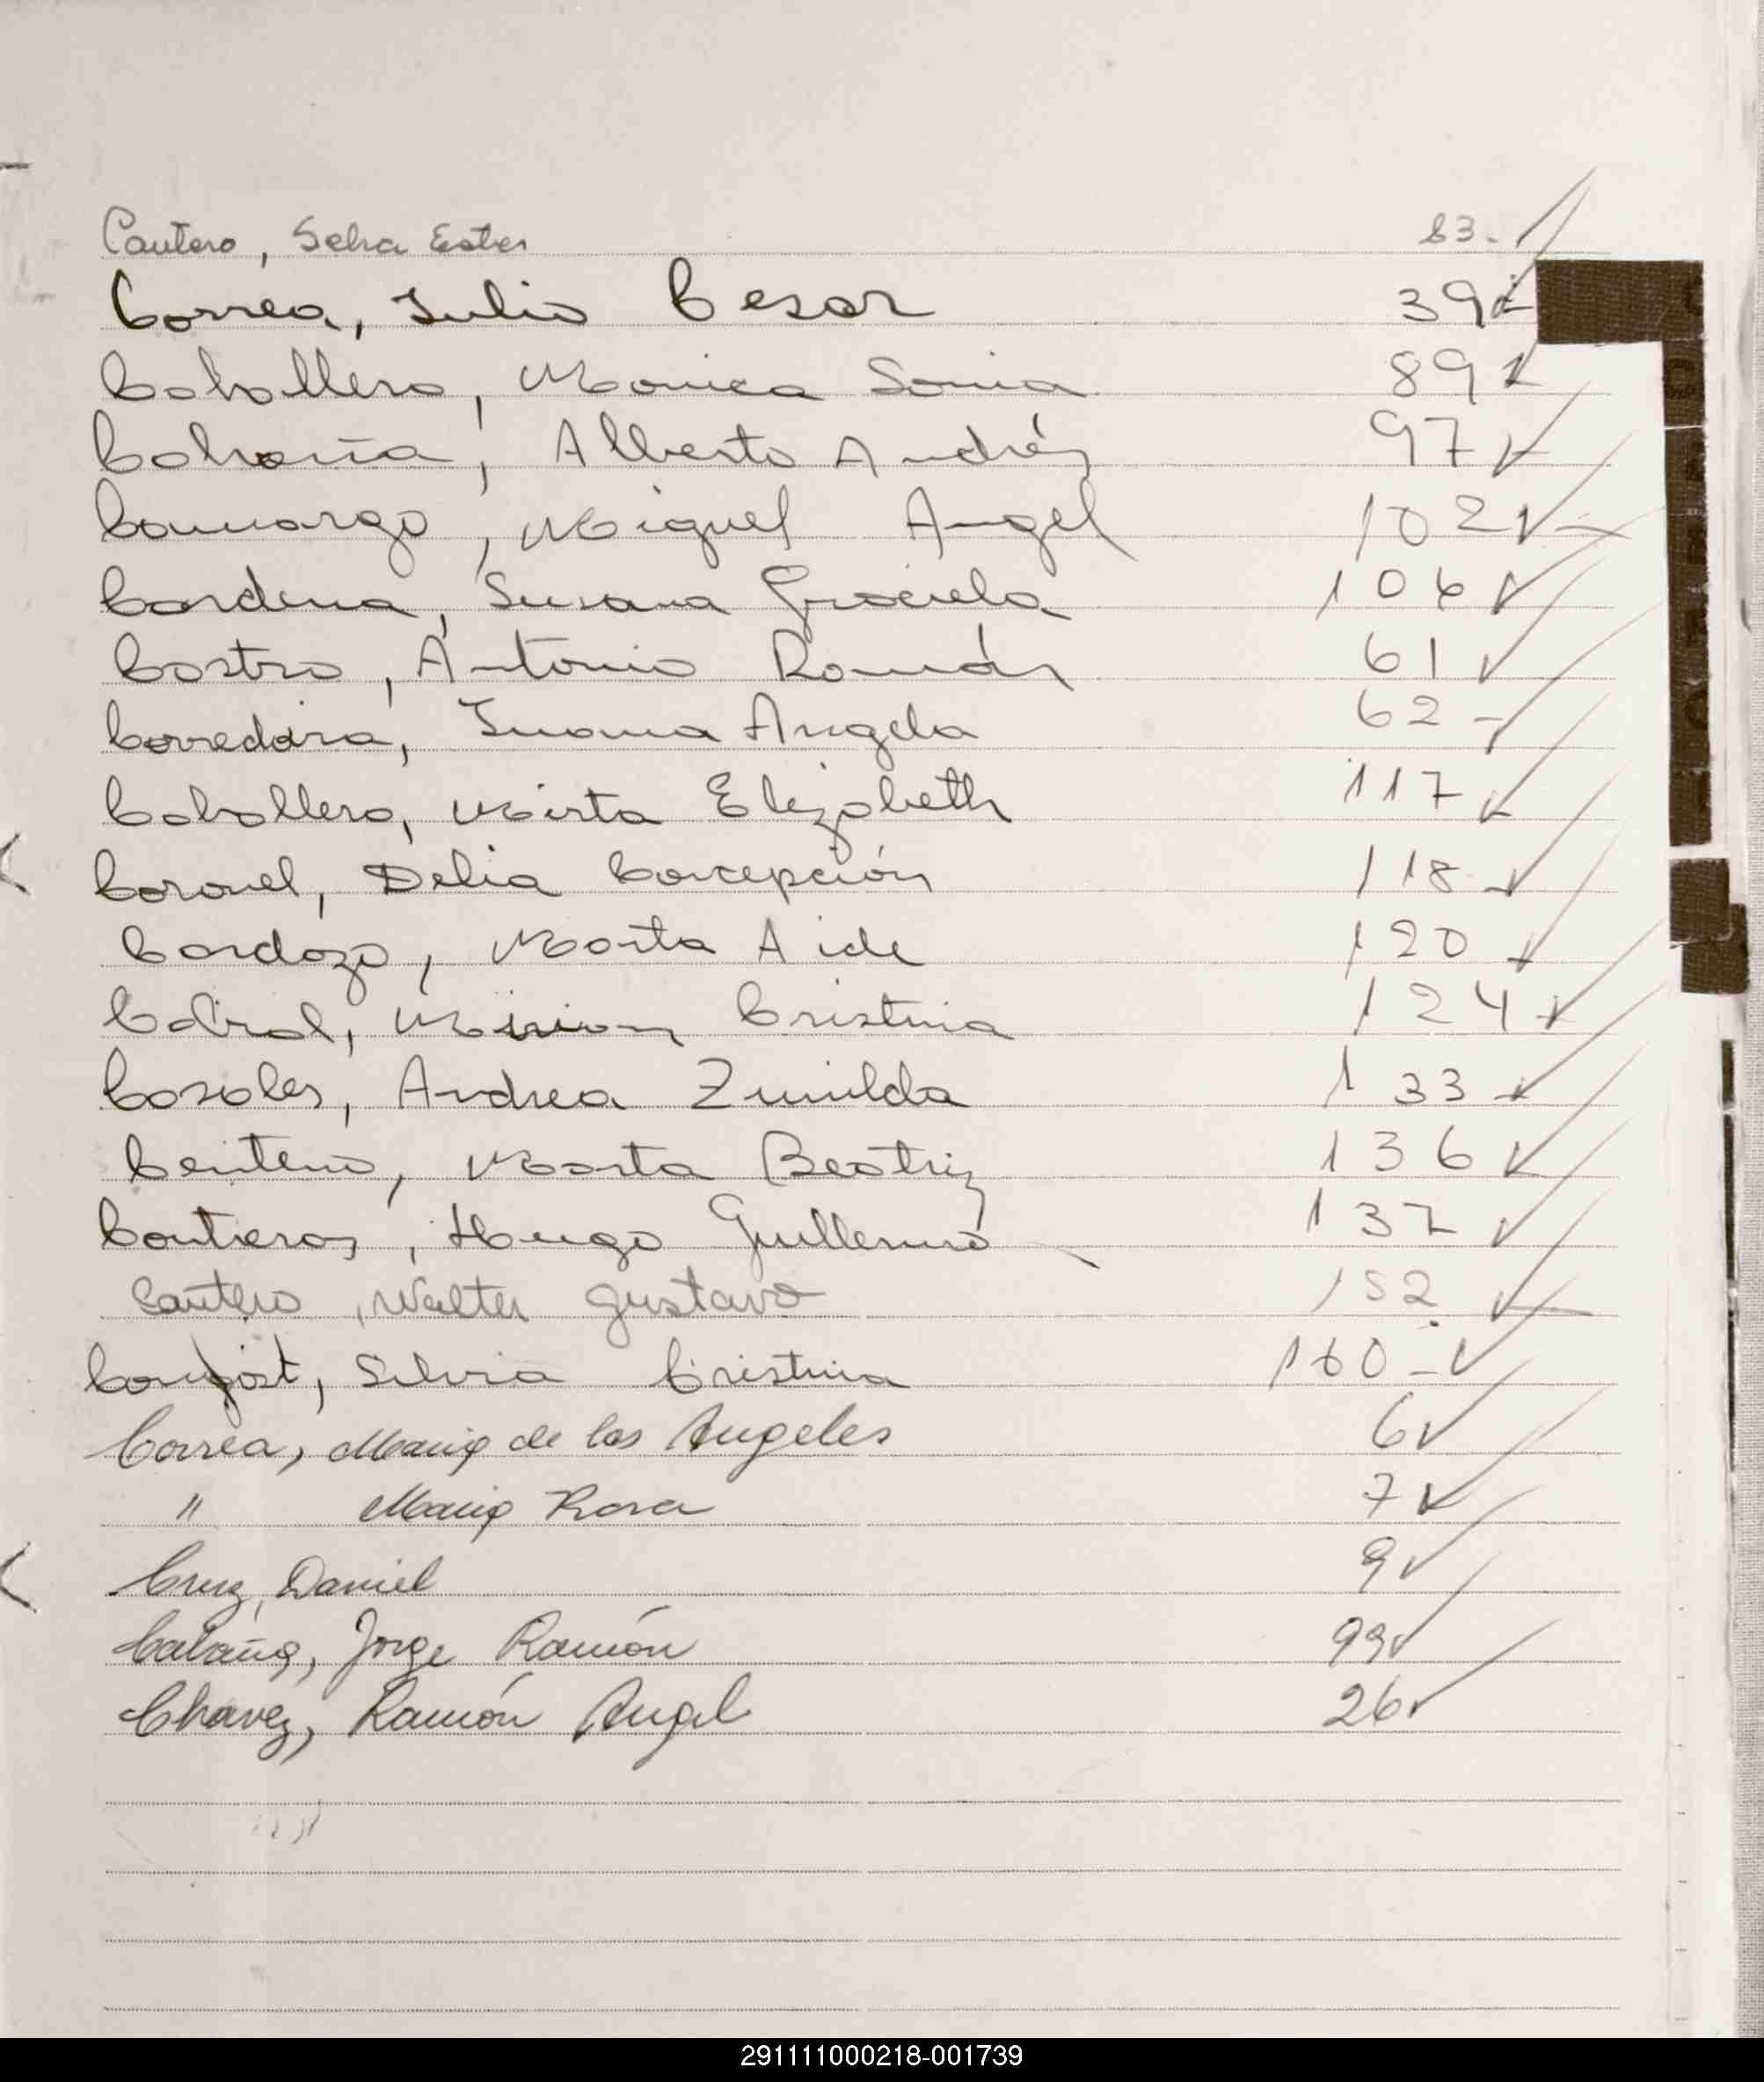 Cantero, Selva Ester 83.
Correa, Julio Cesar 39
Caballero, Monica Sonia 89
Cabaña, Alberto Andrés 97
Camargo, Miguel Angel 102
Cardena, Susana Graciela 106
Castro, Antonio Román 61
Corredera, Juana Angela 62
Caballero, Mirta Elizabeth 117
Coronel, Delia Concepción 118
Cardozo, Marta Aide 120
Cabral, Mirian Cristina 124
Casales, Andrea Zunilda 133
Centeno, Marta Beatriz 136
Contreras, Hugo Guillermo 137
Cantero, Walter Gustavo 152
Silvia Cristina 160
Correa, Maria de los Angeles 6
" Maria Rosa 7
Cruz, Daniel 9
Cabaña, Jorge Ramón 99
Chavez, Ramón Angel 26
291111000218-001739